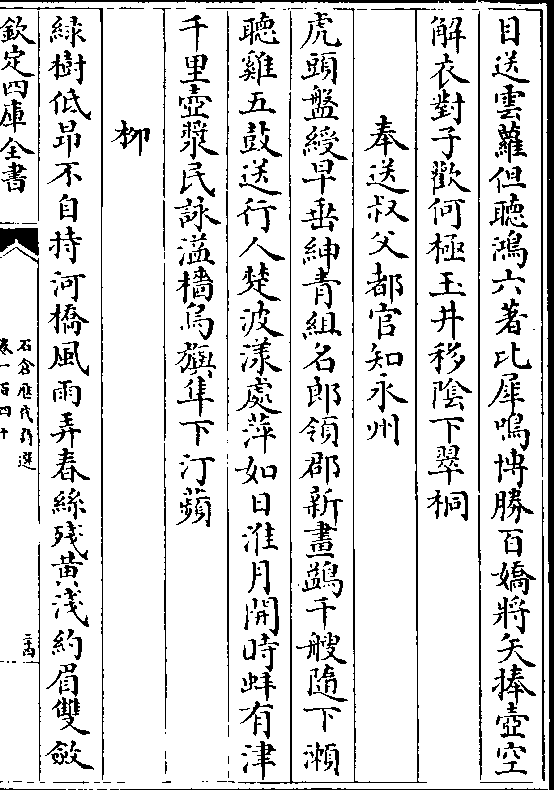 目送雲蘿但聽鴻六著比犀鳴博勝百嬌將矢捧壺空
解衣對子歡何極玉井移陰下翠桐
奉送叔父都官知永州
虎頭盤綬早垂紳青組名郎領郡新畫鷁千艘隨下瀨
聽雞五鼓送行人楚波漾處萍如日淮月開時蚌有津
千里壺漿民詠溢檣烏旟隼下汀蘋
柳
綠樹低昂不自持河橋風雨弄春絲殘黃淺約眉雙斂
欽定四庫全書
石倉歷代詩選
卷一百四十
二十四